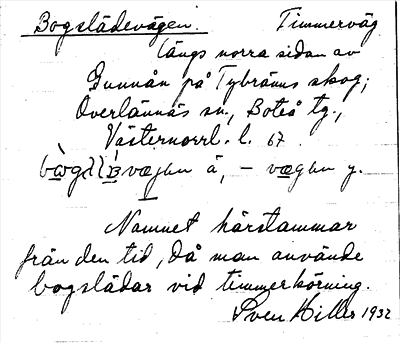 Bogslädevägen. Timmerväg
längs norra sidan av
Gunnån på Tybränns skog;
Överlännäs sn., Boteå tg.,
Västernorrl. l. 67.
å, – y.
Namnet härstammar
från den tid, då man använde
bogslädar vid timmerkörning.
Sven Hiller 1932